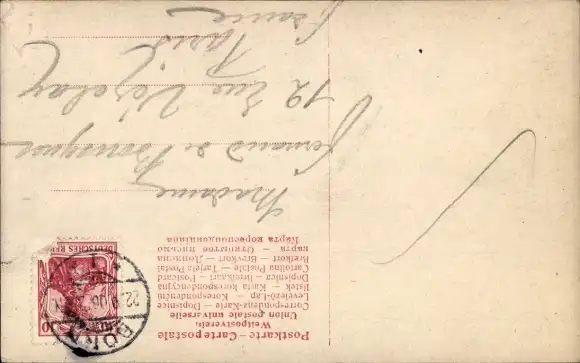 Postkarte – Carte postale
Weltpostverein
Union postale universelle
Correspondenz-Karte – Dopisnice
Levelező-Lap – Korespondenční
lístek – Karta korespondencyjna
Dopisnica – Briefkaart – Postcard
Cartolina Postale – Tarjeta Postal
Brefkort – Brevkort – Дописна
карта – Открытое письмо
Карта кореспонденциjна
DEUTSCHES REICH
10
Madame
Fernand de
12 rue Vézelay
Paris
France